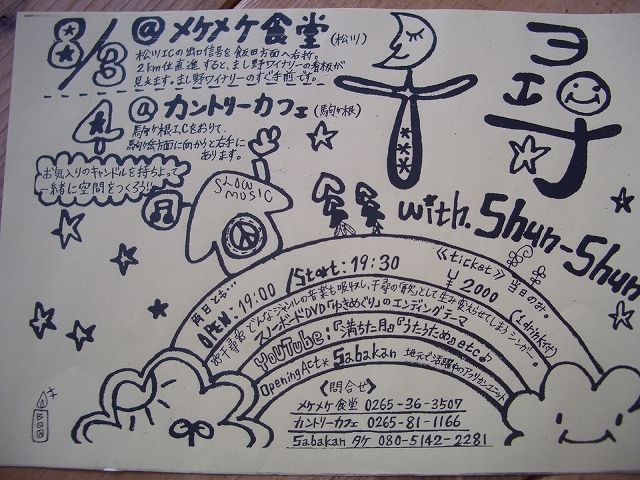 8/3 @メケメケ食堂 (松川)
松川ICの出口信号を飯田方面へ右折。
2km位直進すると、まし野ワイナリーの看板が
見えます。まし野ワイナリーのすぐ手前です。
4 @カントリーカフェ (駒ヶ根)
駒ヶ根ICをおりて、
に向かうと右手に
あります。
お気入りのキャンドルを持ちよって
一緒に空間をつくろう!!
SLOW
MUSIC
千尋
with. Shun-Shun
両日とも…
OPEN: 19:00 /Start: 19:30
《ticket》当日のみ。
¥2000 (1drink付)
※千尋※ どんなジャンルの音楽も吸収し、千尋の「歌」として生み変えらせてしまうシンガー。
スノーボードDVD『ゆきめぐり』のエンディングテーマ
YouTube:『満ちた月』『うたうため』etc…♪
Opening Act* Sabakan 地元で活躍中のアフリカンユニット
《問合せ》
メケメケ食堂 0265-36-3507
カントリーカフェ 0265-81-1166
Sabakan タケ 080-5142-2281